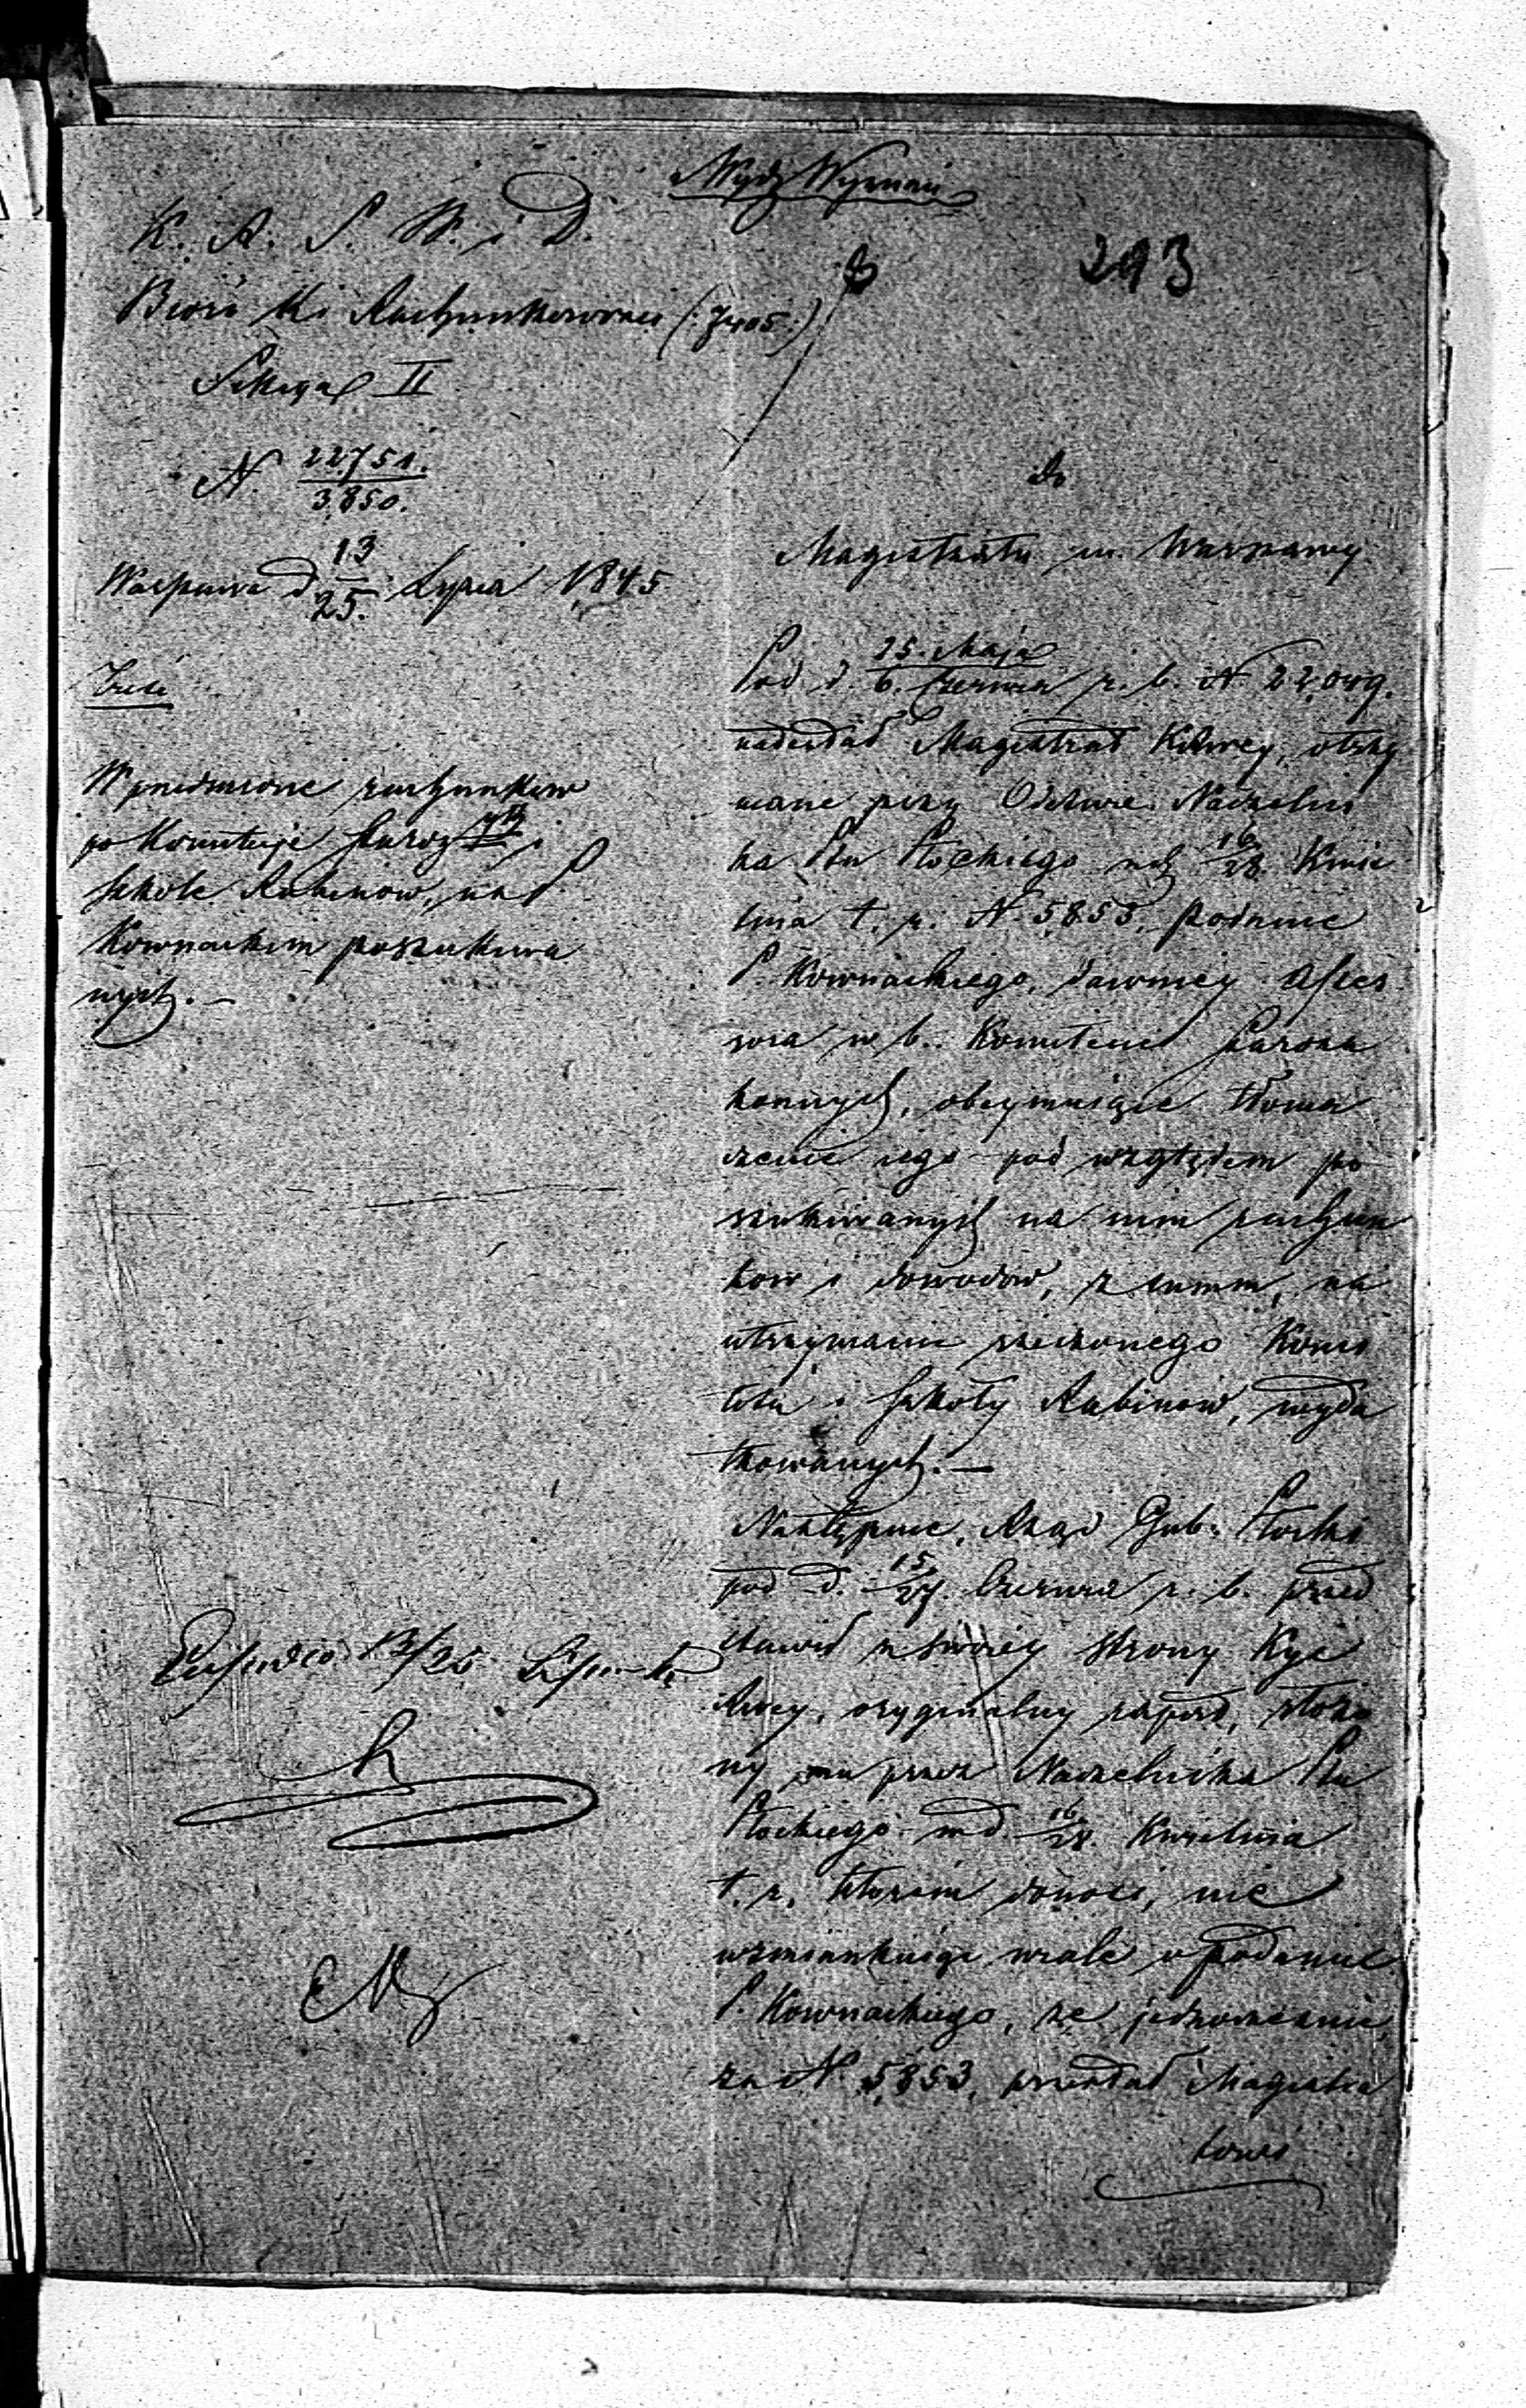 Wydz Wyznań
K. R. S. W. i D.
293
Bióro Kt Rachunkowości (:7405:)
Sekcya II
N. 22751./3,850.
Warszawa d. 13/25. Lipca 1845
Treść
W przedmiocie rachunków
po Komitecie Staroz
Szkole Rabinów, na P.
Kownackim poszukiwa
nych. —
Expedio 13/25
do
Magistratu m. Warszawy
Pod d. 25. Maja/6. Czerwca r. b. N 22,049.
nadesłał Magistrat KRwey, otrzy
mane przy Odezwie Naczelni
ka Ptu Płockiego z d. 16/28. Kwie
tnia t. r. N. 5,853, podanie
P. Kownackiego, dawniey Asses
sora w b. Komitecie Staroza
konnych, obeymuiące tłoma
czenie iego pod względem po
szukiwanych na nim rachun
ków i dowodów, z summ, na
utrzymanie rzeczonego Komi
tetu i Szkoły Rabinów, wyda
tkowanych. —
Następnie, Rząd Gub: Płocki
pod d. 15/27. Czerwca r. b. przed
stawił z swoiey strony Kys
Rwey, oryginalny raport, złożo
ny mu przez Naczelnika Ptu
Płockiego w d. 16/28. Kwietnia
t. r. którem donosi, nie
wzmiankuiąc wcale o podaniu
P. Kownackiego, że jednocześnie,
za N. 5,853, przesłał Magistra
towi